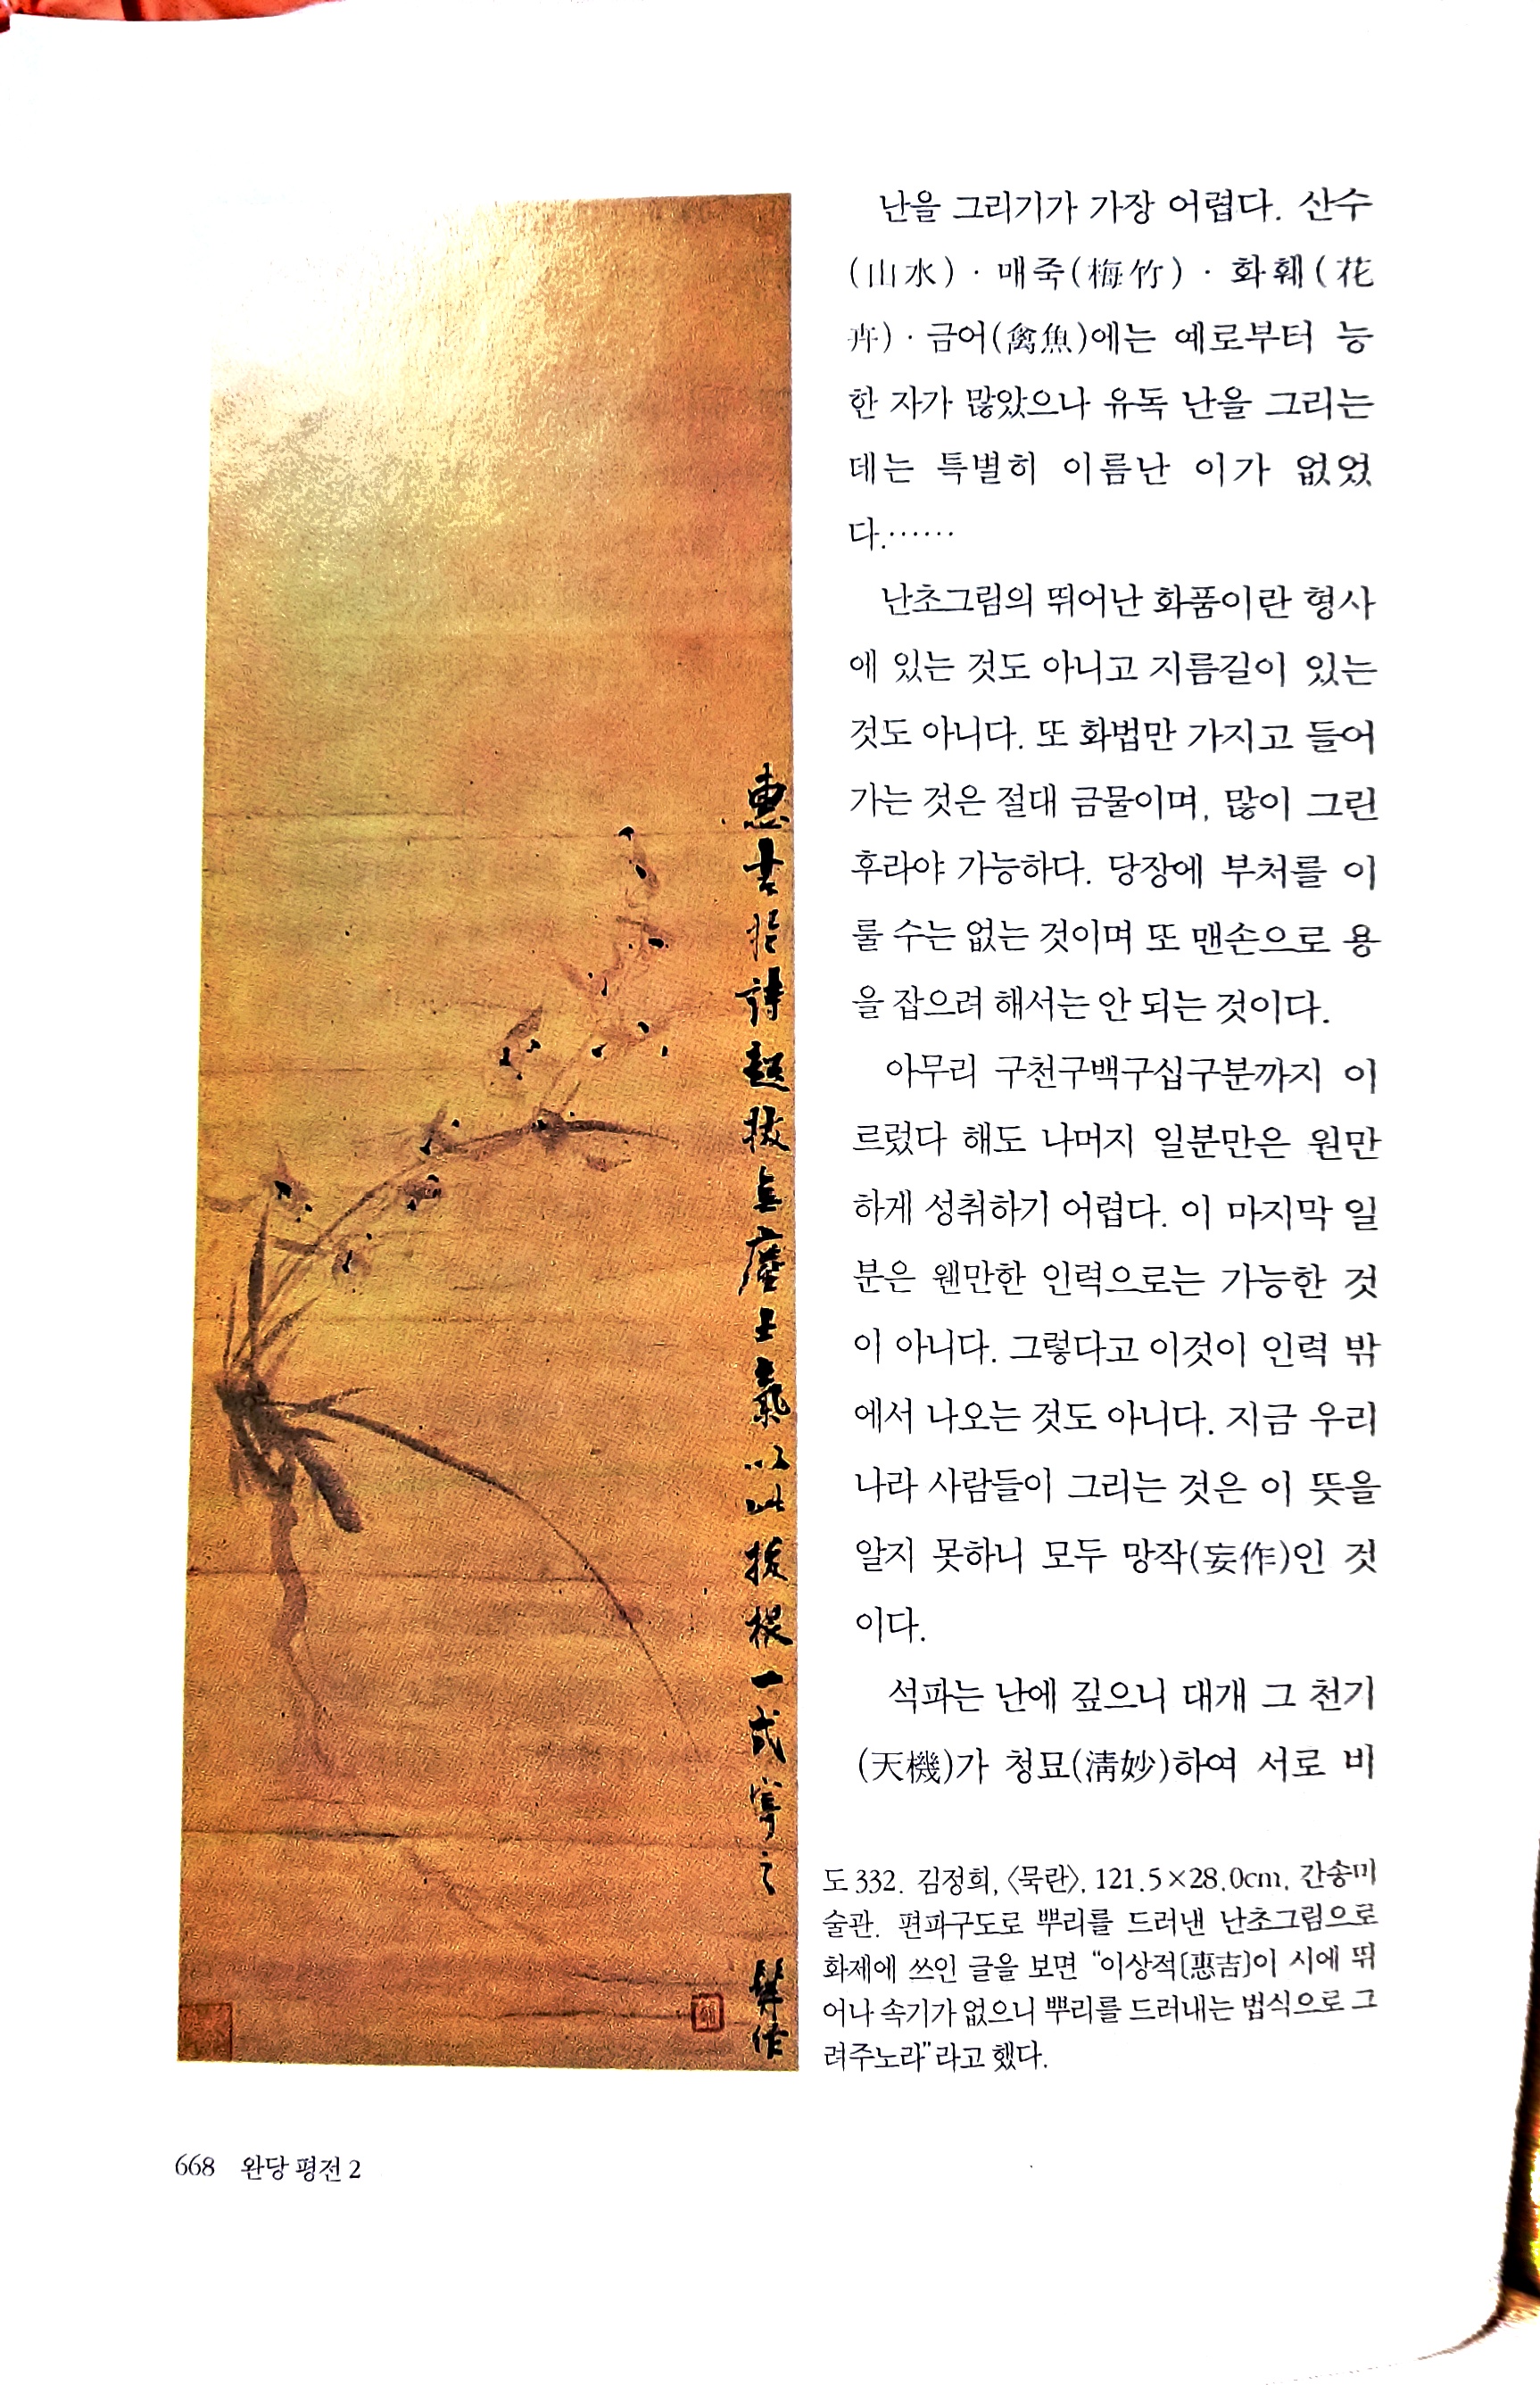 난을 그리기가 가장 어렵다. 산수
(山水)·매죽(梅竹)·화훼(花
卉)·금어(禽魚)에는 예로부터 능
한 자가 많았으나 유독 난을 그리는
데는 특별히 이름난 이가 없었
다.……
난초그림의 뛰어난 화품이란 형사
에 있는 것도 아니고 지름길이 있는
것도 아니다. 또 화법만 가지고 들어
가는 것은 절대 금물이며, 많이 그린
후라야 가능하다. 당장에 부처를 이
룰 수는 없는 것이며 또 맨손으로 용
을 잡으려 해서는 안 되는 것이다.
아무리 구천구백구십구분까지 이
르렀다 해도 나머지 일분만은 원만
하게 성취하기 어렵다. 이 마지막 일
분은 웬만한 인력으로는 가능한 것
이 아니다. 그렇다고 이것이 인력 밖
에서 나오는 것도 아니다. 지금 우리
나라 사람들이 그리는 것은 이 뜻을
알지 못하니 모두 망작(妄作)인 것
이다.
석파는 난에 깊으니 대개 그 천기
(天機)가 청묘(淸妙)하여 서로 비
惠吉於詩超拔無塵土氣以此拔根一式寫之 髥作
도 332. 김정희, 〈묵란〉, 121.5×28.0cm, 간송미
술관. 편파구도로 뿌리를 드러낸 난초그림으로
화제에 쓰인 글을 보면 “이상적[惠吉]이 시에 뛰
어나 속기가 없으니 뿌리를 드러내는 법식으로 그
려주노라”라고 했다.
668 완당 평전 2